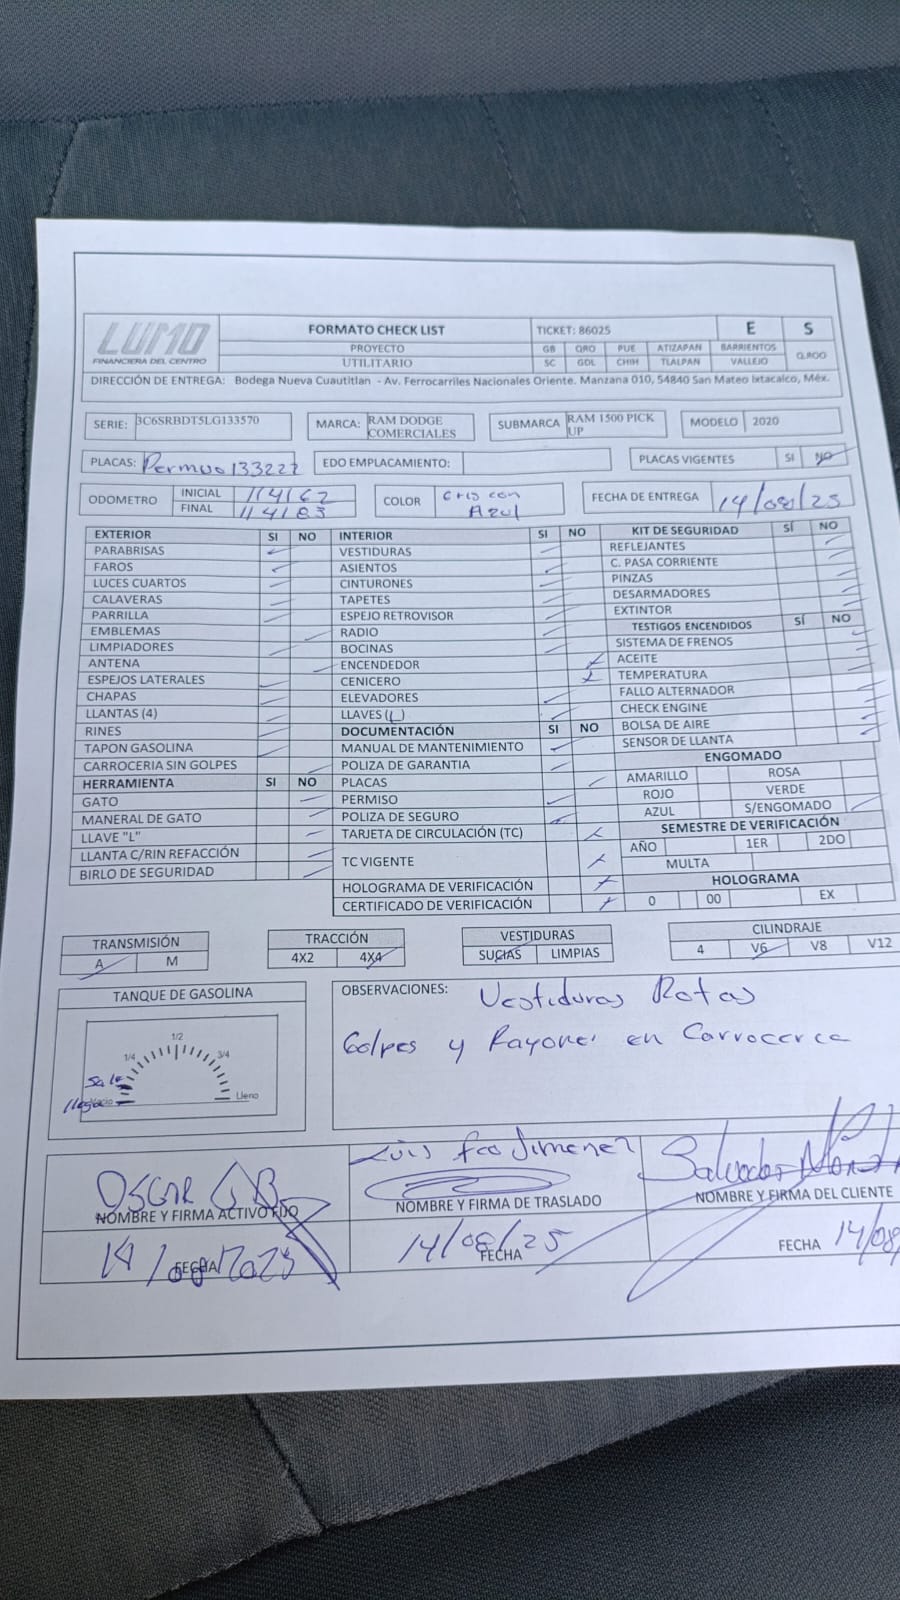 LUMO
FINANCIERA DEL CENTRO
FORMATO CHECK LIST
PROYECTO
UTILITARIO
TICKET: 86025 E S
GB QRO PUE ATIZAPAN BARRIENTOS Q.ROO
SC GDL CHIH TLALPAN VALLEJO
DIRECCIÓN DE ENTREGA: Bodega Nueva Cuautitlan - Av. Ferrocarriles Nacionales Oriente. Manzana 010, 54840 San Mateo Ixtacalco, Méx.
SERIE: 3C6SRBDT5LG133570
MARCA: RAM DODGE COMERCIALES
SUBMARCA RAM 1500 PICK UP
MODELO 2020
PLACAS: Permiso 133222
EDO EMPLACAMIENTO:
PLACAS VIGENTES SI NO
ODOMETRO INICIAL 114162
FINAL 114183
COLOR Gris con Azul
FECHA DE ENTREGA 14/08/25
EXTERIOR SI NO
PARABRISAS
FAROS
LUCES CUARTOS
CALAVERAS
PARRILLA
EMBLEMAS
LIMPIADORES
ANTENA
ESPEJOS LATERALES
CHAPAS
LLANTAS (4)
RINES
TAPON GASOLINA
CARROCERIA SIN GOLPES
HERRAMIENTA SI NO
GATO
MANERAL DE GATO
LLAVE "L"
LLANTA C/RIN REFACCIÓN
BIRLO DE SEGURIDAD
INTERIOR SI NO
VESTIDURAS
ASIENTOS
CINTURONES
TAPETES
ESPEJO RETROVISOR
RADIO
BOCINAS
ENCENDEDOR
CENICERO
ELEVADORES
LLAVES (L)
DOCUMENTACIÓN SI NO
MANUAL DE MANTENIMIENTO
POLIZA DE GARANTIA
PLACAS
PERMISO
POLIZA DE SEGURO
TARJETA DE CIRCULACIÓN (TC)
TC VIGENTE
HOLOGRAMA DE VERIFICACIÓN
CERTIFICADO DE VERIFICACIÓN
KIT DE SEGURIDAD SÍ NO
REFLEJANTES
C. PASA CORRIENTE
PINZAS
DESARMADORES
EXTINTOR
TESTIGOS ENCENDIDOS SÍ NO
SISTEMA DE FRENOS
ACEITE
TEMPERATURA
FALLO ALTERNADOR
CHECK ENGINE
BOLSA DE AIRE
SENSOR DE LLANTA
ENGOMADO
AMARILLO ROSA
ROJO VERDE
AZUL S/ENGOMADO
SEMESTRE DE VERIFICACIÓN
AÑO 1ER 2DO
MULTA
HOLOGRAMA
0 00 EX
TRANSMISIÓN
A M
TRACCIÓN
4X2 4X4
VESTIDURAS
SUCIAS LIMPIAS
CILINDRAJE
4 V6 V8 V12
TANQUE DE GASOLINA
1/4 1/2 3/4
Sale
llega Vacio Lleno
OBSERVACIONES: Vestiduras Rotas
Golpes y Rayones en Carroceria
OSCAR G B
NOMBRE Y FIRMA ACTIVO FIJO
14/08/2025
FECHA
Luis Fco Jimenez
NOMBRE Y FIRMA DE TRASLADO
14/08/25
FECHA
Salvador
NOMBRE Y FIRMA DEL CLIENTE
FECHA 14/08/